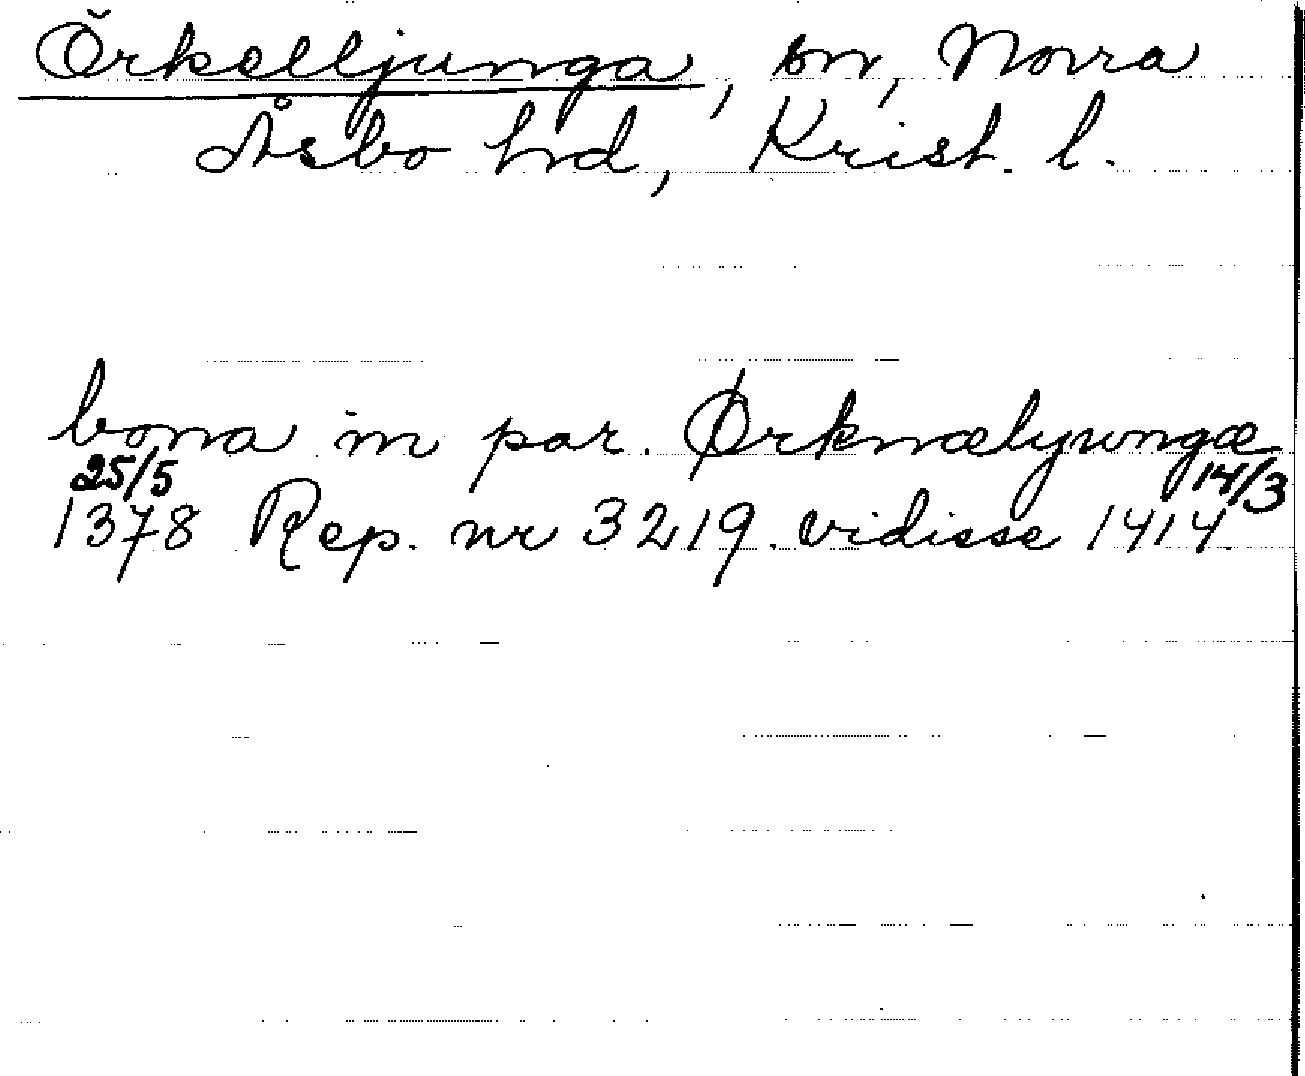 Örkelljunga, sn, Norra
Åsbo hd, Krist. l.
bona in par. Ørknælyungæ
25/5 14/3
1378 Rep. nr 3219. vidisse 1414